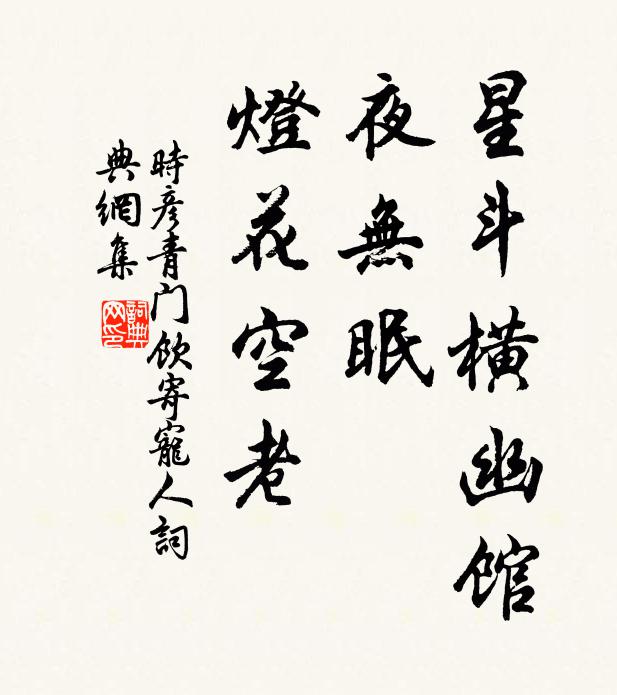 星斗橫幽館
夜無眠
燈花空老
時彥青门飲寄寵人詞
典網集
詞典网印